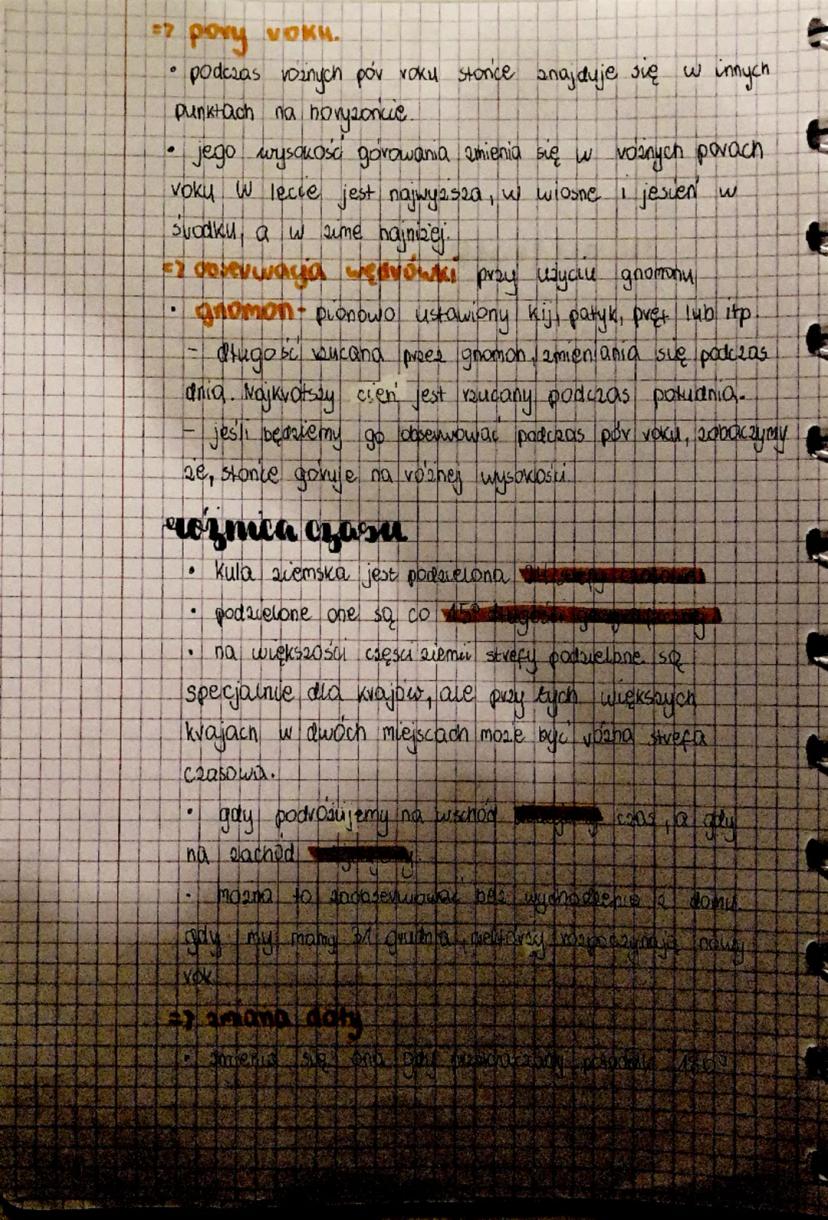 => pory roku.
• podczas różnych pór roku słońce znajduje się w innych
punktach na horyzoncie.
• jego wysokość górowania zmienia się w różnych porach
roku. W lecie jest najwyższa, w wiosnę i jesień w
środku, a w zimę najniżej.
=> obserwacja wędrówki przy użyciu gnomonu
• gnomon - pionowo ustawiony kij, patyk, pręt lub itp.
- długość rzucana przez gnomon, zmieniania się podczas
dnia. Najkrótszy cień jest rzucany podczas południa.
- jeśli będziemy go obserwować podczas pór roku, zobaczymy
że, słońce góruje na różnej wysokości.
różnica czasu
• kula ziemska jest podzielona
• podzielone one są co 15° długości geograficznej
• na większości części ziemii strefy podzielone są
specjalnie dla krajów, ale przy tych większych
krajach w dwóch miejscach może być różna strefa
czasowa.
• gdy podróżujemy na wschód czas, a gdy
na zachód
• można to zaobserwować bez wychodzenia z domu.
gdy my mamy 31 grudnia, niektórzy rozpoczynają nowy
rok
=> zmiana daty
• zmienia się ona gdy przekraczamy południk 180°